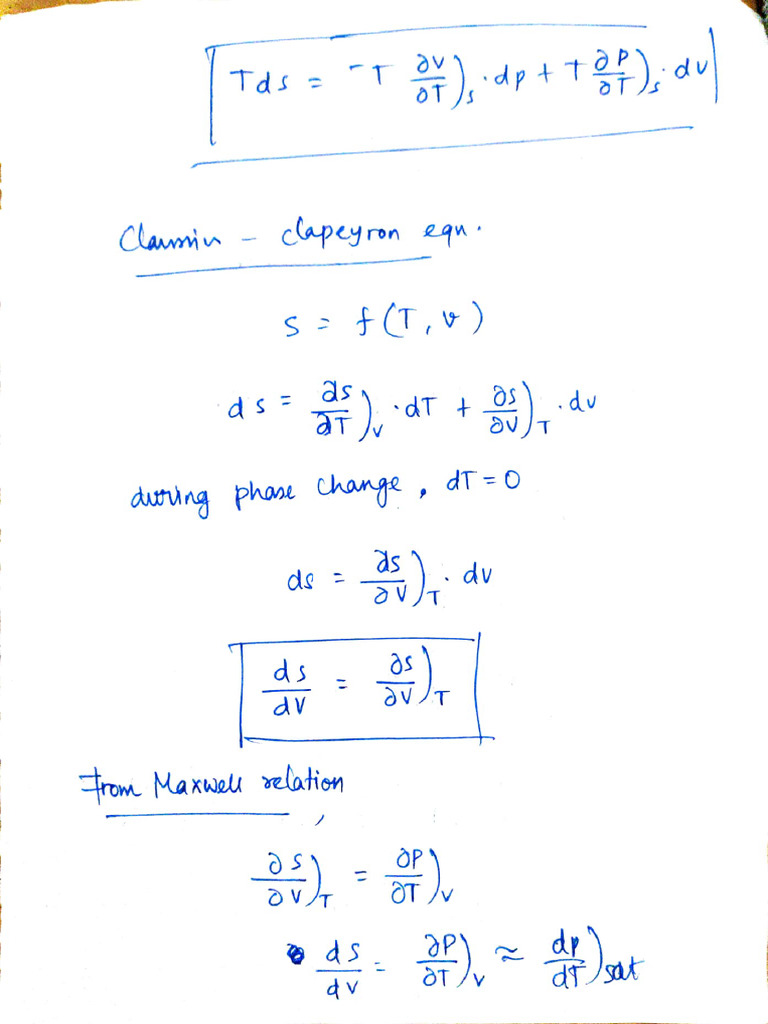 Tds = -T ∂v/∂T)s · dp + T ∂P/∂T)s · dv
Claussius - clapeyron eqn.
s = f(T, v)
ds = ∂s/∂T)v · dT + ∂s/∂v)T · dv
during phase change, dT = 0
ds = ∂s/∂v)T · dv
ds/dv = ∂s/∂v)T
From Maxwell relation,
∂s/∂v)T = ∂P/∂T)v
ds/dv = ∂P/∂T)v ≈ dp/dT)sat